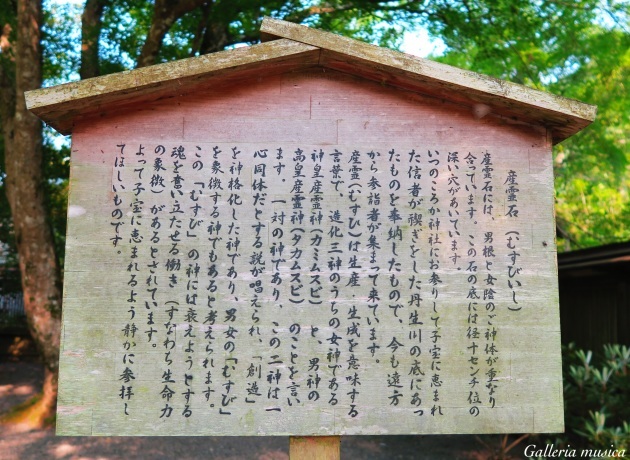 産霊石 （むすびいし）
産霊石には、男根と女陰のご神体が重なり
合っています。この石の底には径十センチ位の
深い穴があいています。
いつのころか神社にお参りして子宝に恵まれ
た信者が禊ぎをした丹生川の底にあっ
たものを奉納したもので、今も遠方
から参詣者が集まって来ています。
産霊（むすび）は生産・生成を意味する
言葉で、造化三神のうちの女神である
神皇産霊神（カミムスビ）と、男神の
高皇産霊神（タカムスビ）のことを言い
ます。一対の神であり、この二神は一
心同体だとする説が唱えられ、「創造」
を神格化した神であり、男女の「むすび」
を象徴する神でもあると考えられます。
この「むすび」の神には衰えようとする
魂を奮い立たせる働き（すなわち生命力
の象徴）があるとされています。
よって子宝に恵まれるよう静かに参拝し
てほしいものです。
Galleria musica